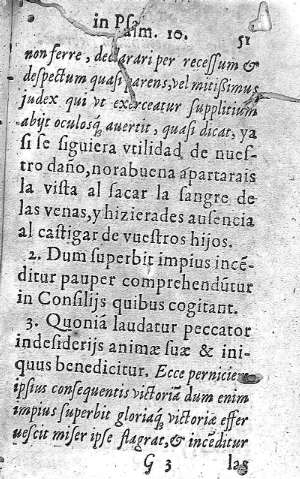 in Psalm. 10.
51
non ferre, declarari per recessum &
despectum quasi parens, vel mitissimus
judex qui vt exerceatur supplitium
abijt oculosq́ avertit, quasi dicat, ya
si se siguiera vtilidad de nues-
tro daño, norabuena apartarais
la vista al sacar la sangre de
las venas, y hizierades ausencia
al castigar de vuestros hijos.
2. Dum superbit impius incē-
ditur pauper comprehendūtur
in Consilijs quibus cogitant.
3. Quoniā laudatur peccator
in desiderijs animæ suæ & ini-
quus benedicitur. Ecce
ipsius consequentis victoriā dum enim
impius superbit gloriaq́ victoriæ effer
uescit miser ipse flagrat, & incēditur
G 3 las